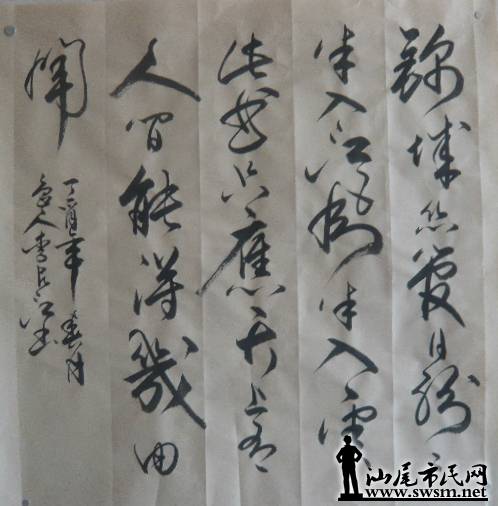 錦城丝管日紛々
半入江风半入雲
此曲只應天上有
人间能得幾回
闻
丁酉年春月
人李長江书
汕尾市民网
www.swsm.net